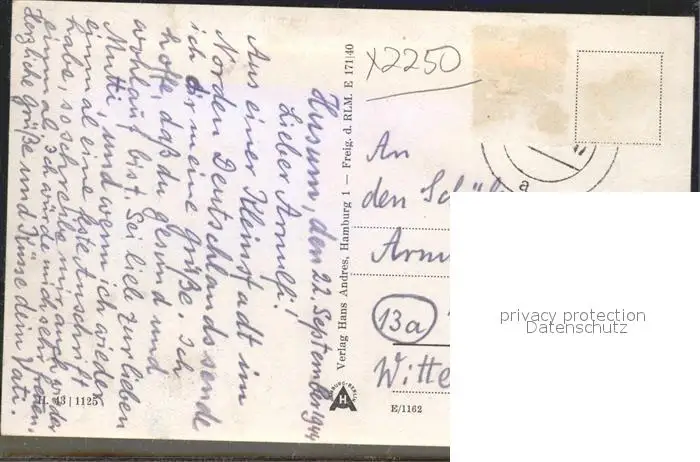 Husum, den 22. September 1944
Lieber Arnulf!
Aus einer Kleinstadt im
Norden Deutschlands sende
ich dir meine Grüße. Ich
hoffe, daß du gesund und
wohlauf bist. Sei lieb zur lieben
Mutti, und wenn ich wieder
einmal eine feste Anschrift
habe, so schreibe mir auch wieder
einmal. Ich würde mich sehr freuen.
Herzliche Grüße und Küsse dein Vati.
H. 43 | 1125
Verlag Hans Andres, Hamburg 1 — Freig. d. RLM. E 171|40
HAMBURG-BERLIN
HA
E/1162
x2250
a
An
den Schül
Arnu
13a
Witte
privacy protection
Datenschutz